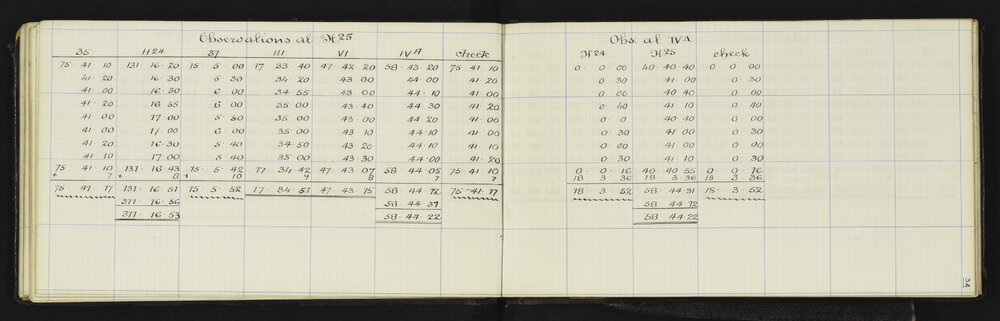 Observations at H25
Obs. at IVA
35 H24 37 III VI IVA check
H24 H25 check
75 · 41 · 10 131 · 16 · 20 15 · 5 · 00 17 · 33 · 40 47 · 42 · 20 58 · 43 · 20 75 · 41 · 10
0 · 0 · 00 40 · 40 · 40 0 · 0 · 00
41 · 20 16 · 30 5 · 30 34 · 20 43 · 00 44 · 00 41 · 20
0 · 30 41 · 00 0 · 30
41 · 00 16 · 30 6 · 00 34 · 55 43 · 00 44 · 10 41 · 00
0 · 00 40 · 40 0 · 00
41 · 20 16 · 55 6 · 00 35 · 00 43 · 40 44 · 30 41 · 20
0 · 40 41 · 10 0 · 40
41 · 00 17 · 00 5 · 50 35 · 00 43 · 00 44 · 20 41 · 00
0 · 0 40 · 40 0 · 00
41 · 00 17 · 00 6 · 00 35 · 00 43 · 10 44 · 10 41 · 00
0 · 30 41 · 00 0 · 30
41 · 20 16 · 30 5 · 40 34 · 50 43 · 20 44 · 10 41 · 10
0 · 00 41 · 00 0 · 30
41 · 10 17 · 00 5 · 40 35 · 00 43 · 30 44 · 00 41 · 20
0 · 30 41 · 10 0 · 30
75 · 41 · 10 131 · 16 · 43 15 · 5 · 42 17 · 34 · 42 47 · 43 · 07 58 · 44 · 05 75 · 41 · 10
0 · 0 · 16 40 · 40 · 55 0 · 0 · 16
+ 7 + 8 10 9 8 7 7
18 3 36 18 3 36 18 · 3 · 36
75 · 41 · 17 131 · 16 · 51 15 · 5 · 52 17 · 34 · 51 47 · 43 · 15 58 · 44 · 12 75 · 41 · 17
18 · 3 · 52 58 · 44 · 31 18 · 3 · 52
311 · 16 · 56 58 · 44 · 31
58 · 44 · 12
311 · 16 · 53 58 · 44 · 22
58 · 44 · 22
34